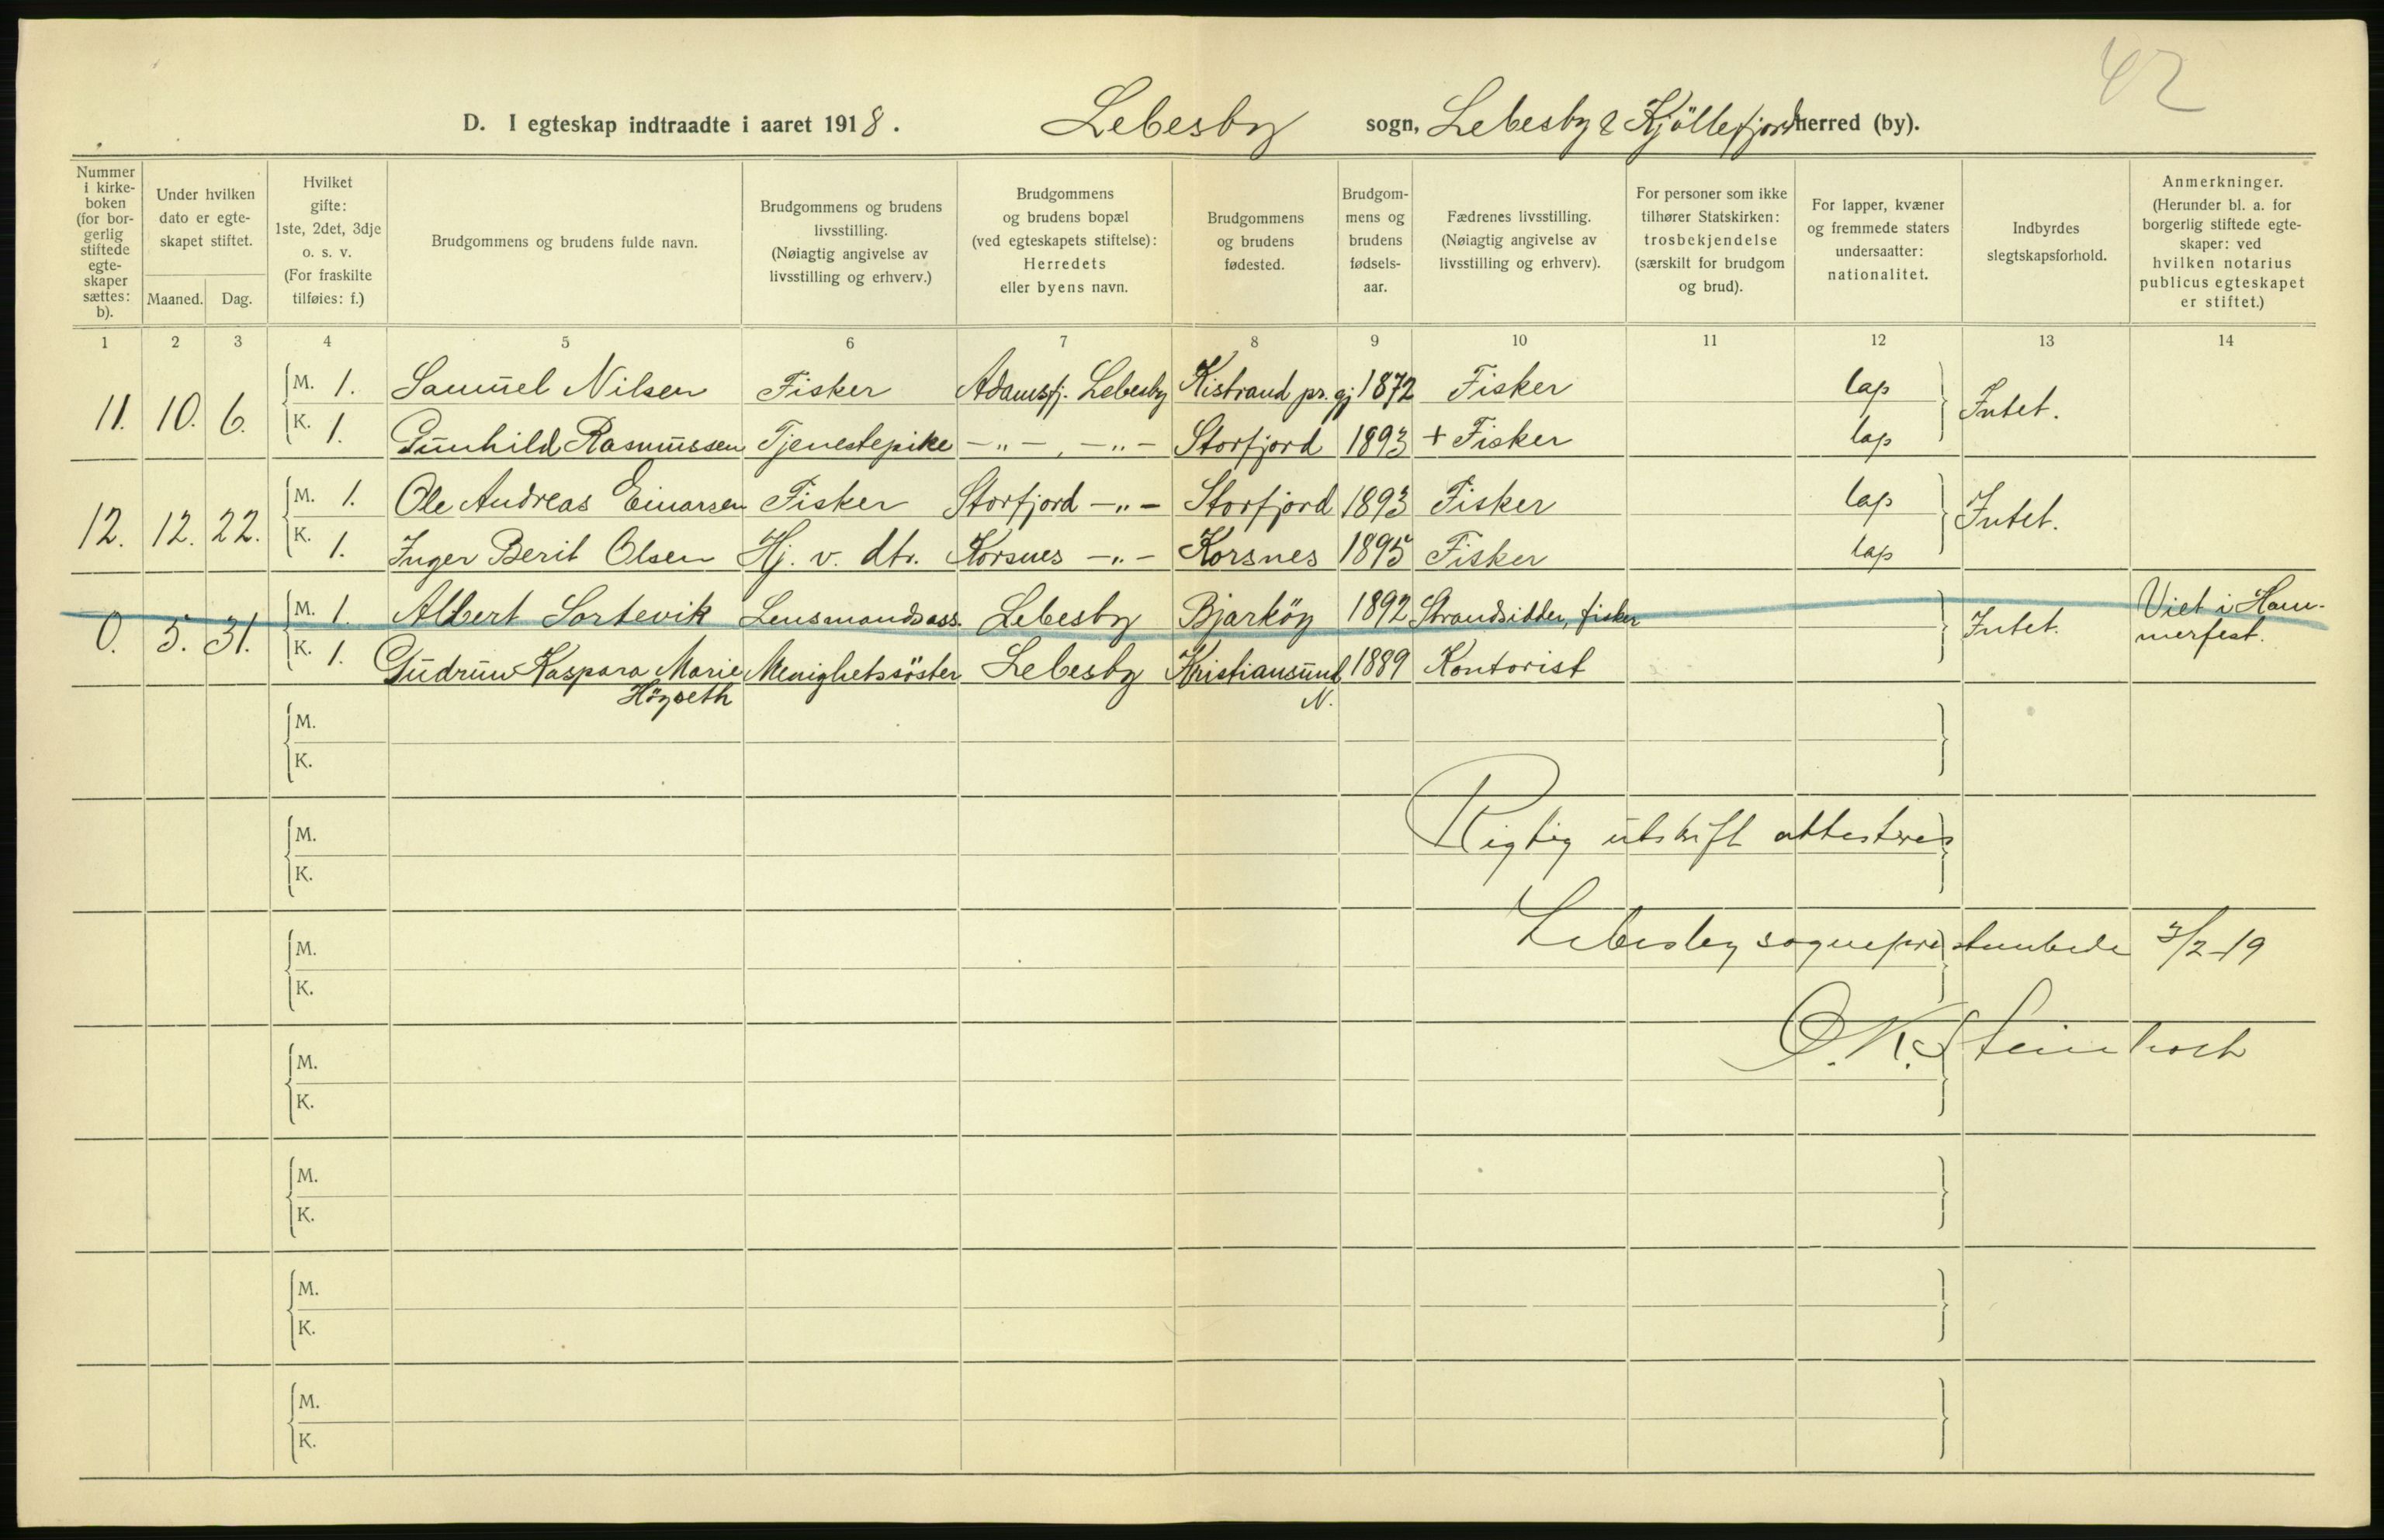 42
D. I egteskap indtraadte i aaret 1918. Lebesby sogn, Lebesby & Kjöllefjord herred (by).
Nummer i kirke-boken (for bor-gerlig stiftede egte-skaper sættes: b).
Under hvilken dato er egte-skapet stiftet.
Maaned. Dag.
Hvilket gifte: 1ste, 2det, 3dje o. s. v. (For fraskilte tilføies: f.)
Brudgommens og brudens fulde navn.
Brudgommens og brudens livsstilling. (Nøiagtig angivelse av livsstilling og erhverv.)
Brudgommens og brudens bopæl (ved egteskapets stiftelse): Herredets eller byens navn.
Brudgommens og brudens fødested.
Brudgom-mens og brudens fødsels-aar.
Fædrenes livsstilling. (Nøiagtig angivelse av livsstilling og erhverv).
For personer som ikke tilhører Statskirken: trosbekjendelse (særskilt for brudgom og brud).
For lapper, kvæner og fremmede staters undersaatter: nationalitet.
Indbyrdes slegtskapsforhold.
Anmerkninger. (Herunder bl. a. for borgerlig stiftede egte-skaper: ved hvilken notarius publicus egteskapet er stiftet.)
1 2 3 4 5 6 7 8 9 10 11 12 13 14
11. 10. 6. M. 1. Samuel Nilsen Fisker Adamsfj. Lebesby Kistrand pr.gj 1872 Fisker lap Intet.
K. 1. Gunhild Rasmussen Tjenestepike —"— , —"— Storfjord 1893 + Fisker lap
12. 12. 22. M. 1. Ole Andreas Einarsen Fisker Storfjord —"— Storfjord 1893 Fisker lap Intet.
K. 1. Inger Berit Olsen Hj. v. dtr. Korsnes —"— Korsnes 1895 Fisker lap
0. 5. 31. M. 1. Albert Sortevik Lensmandsass. Lebesby Bjarköy 1892 Strandsidder, fisker Intet. Viet i Ham-
K. 1. Gudrun Kaspara Marie Menighetssöster Lebesby Kristiansund 1889 Kontorist merfest.
Höyseth N.
M.
K.
M.
K.
Rigtig utskrift attesteres
M.
K.
Lebesby sogneprestembede 3/2-19
M.
K.
O. K. Steinholt
M.
K.
M.
K.
M.
K.